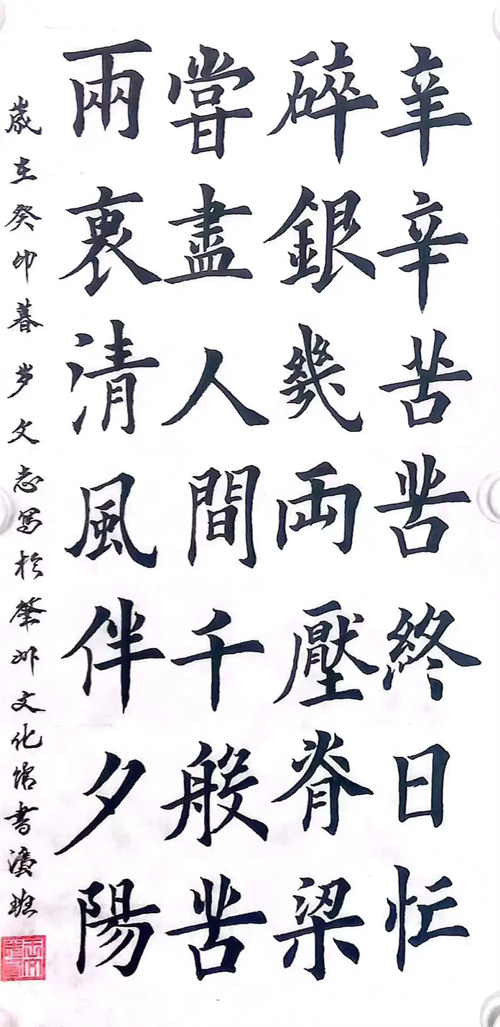 辛辛苦苦終日忙
碎銀幾両壓脊梁
嘗盡人間千般苦
兩裏清風伴夕陽
歲在癸卯暮岁文志寫於肇州文化馆書灋班